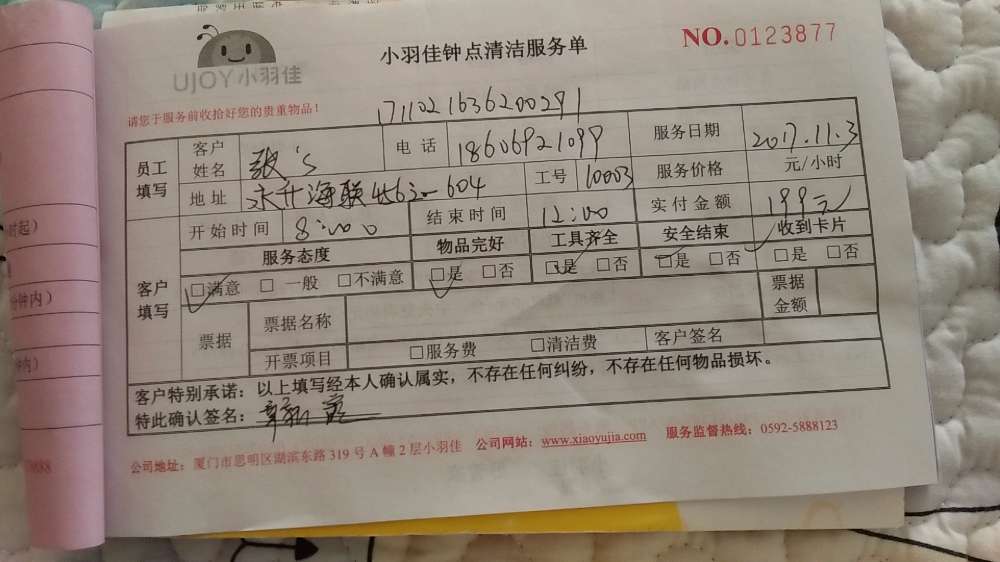 UJOY小羽佳
小羽佳钟点清洁服务单
NO.0123877
请您于服务前收拾好您的贵重物品！
1711021636200291
员工填写 客户姓名 电话 18606921099 服务日期 2017.11.3
地址 604 工号 10003 服务价格 元/小时
开始时间 8:00 结束时间 12:00 实付金额 199元
客户填写 服务态度 物品完好 工具齐全 安全结束 收到卡片
□满意 □一般 □不满意 □是 □否 □是 □否 □是 □否 □是 □否
票据 票据名称 票据金额
开票项目 □服务费 □清洁费 客户签名
客户特别承诺：以上填写经本人确认属实，不存在任何纠纷，不存在任何物品损坏。
特此确认签名：
公司地址：厦门市思明区湖滨东路319号A幢2层小羽佳 公司网站：www.xiaoyujia.com 服务监督热线：0592-5888123
时起）
分钟内）
钟内）